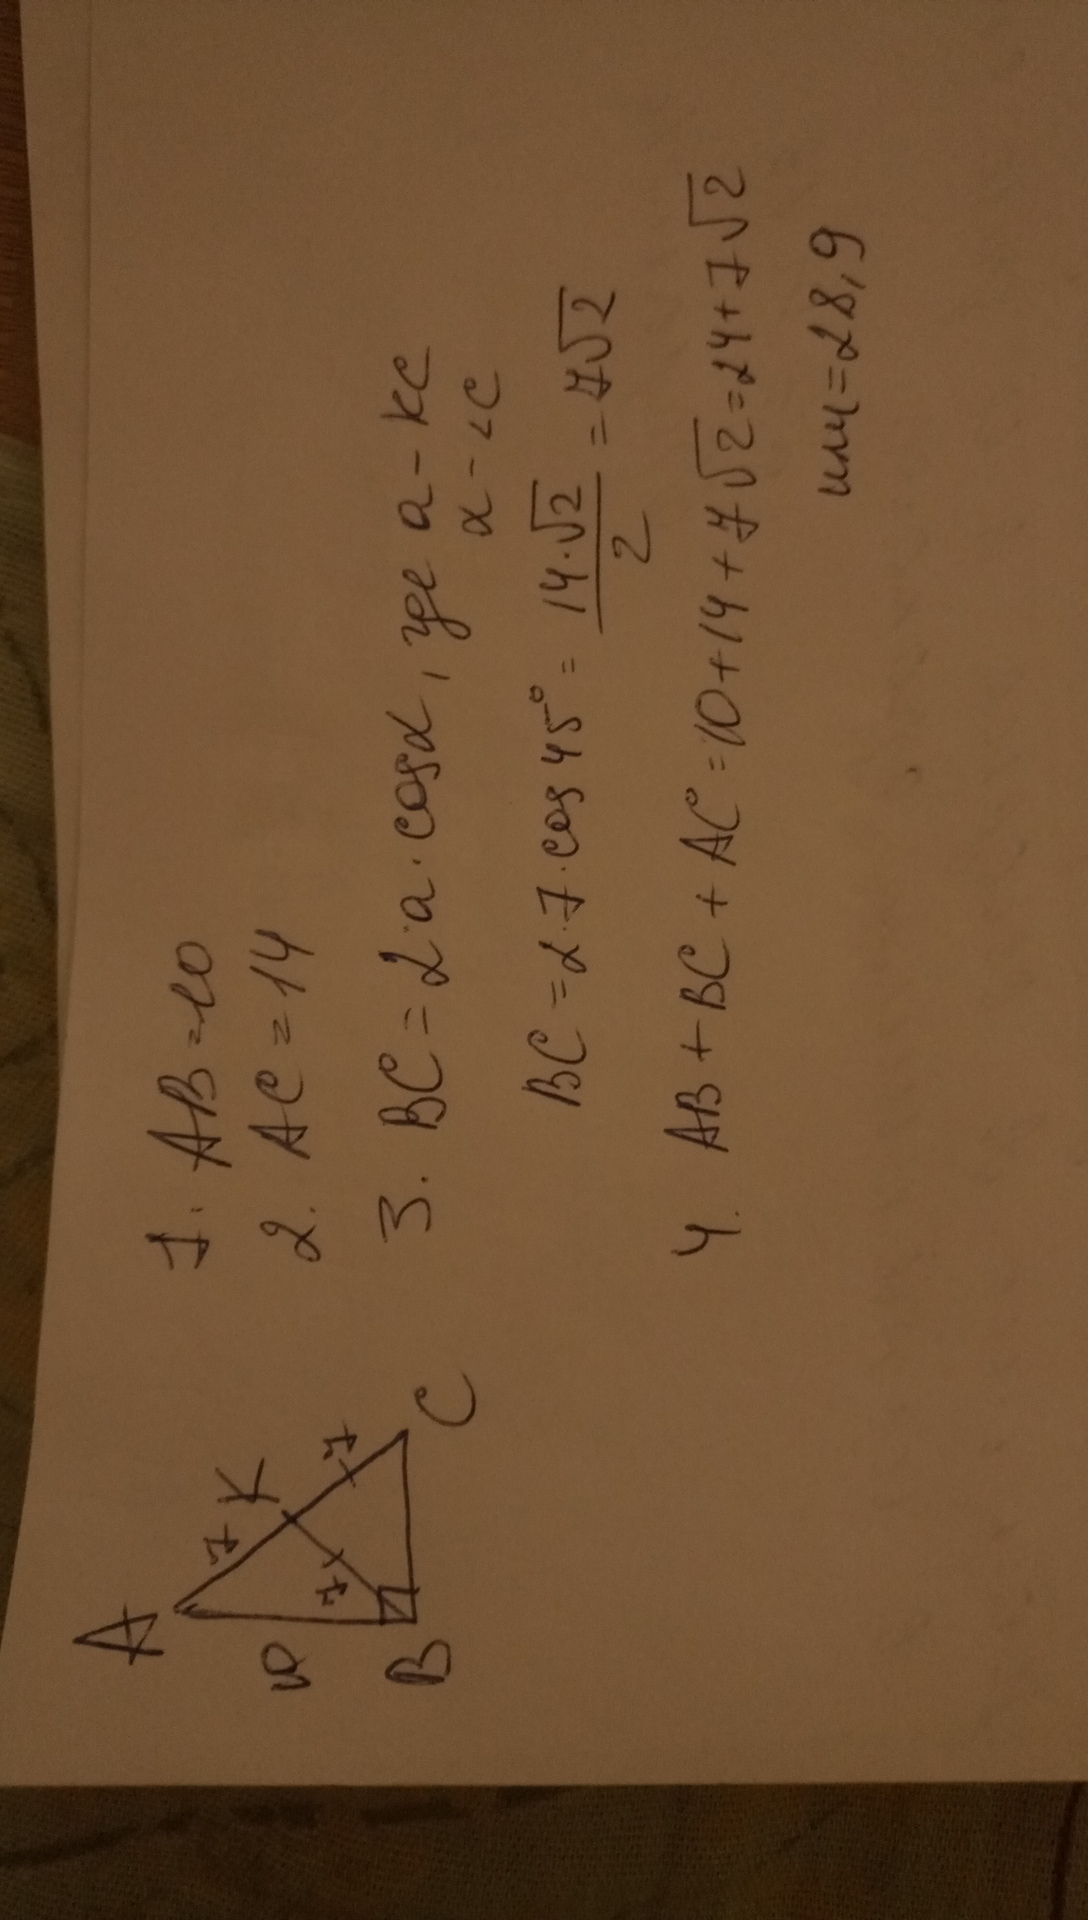 A
K
7
7
7
10
B
C
1. AB=10
2. AC=14
3. BC=2·a·cosα, где a-KC
α-∠C
BC=2·7·cos45°=14·√2/2=7√2
4. AB+BC+AC=10+14+7√2=24+7√2
или=28,9